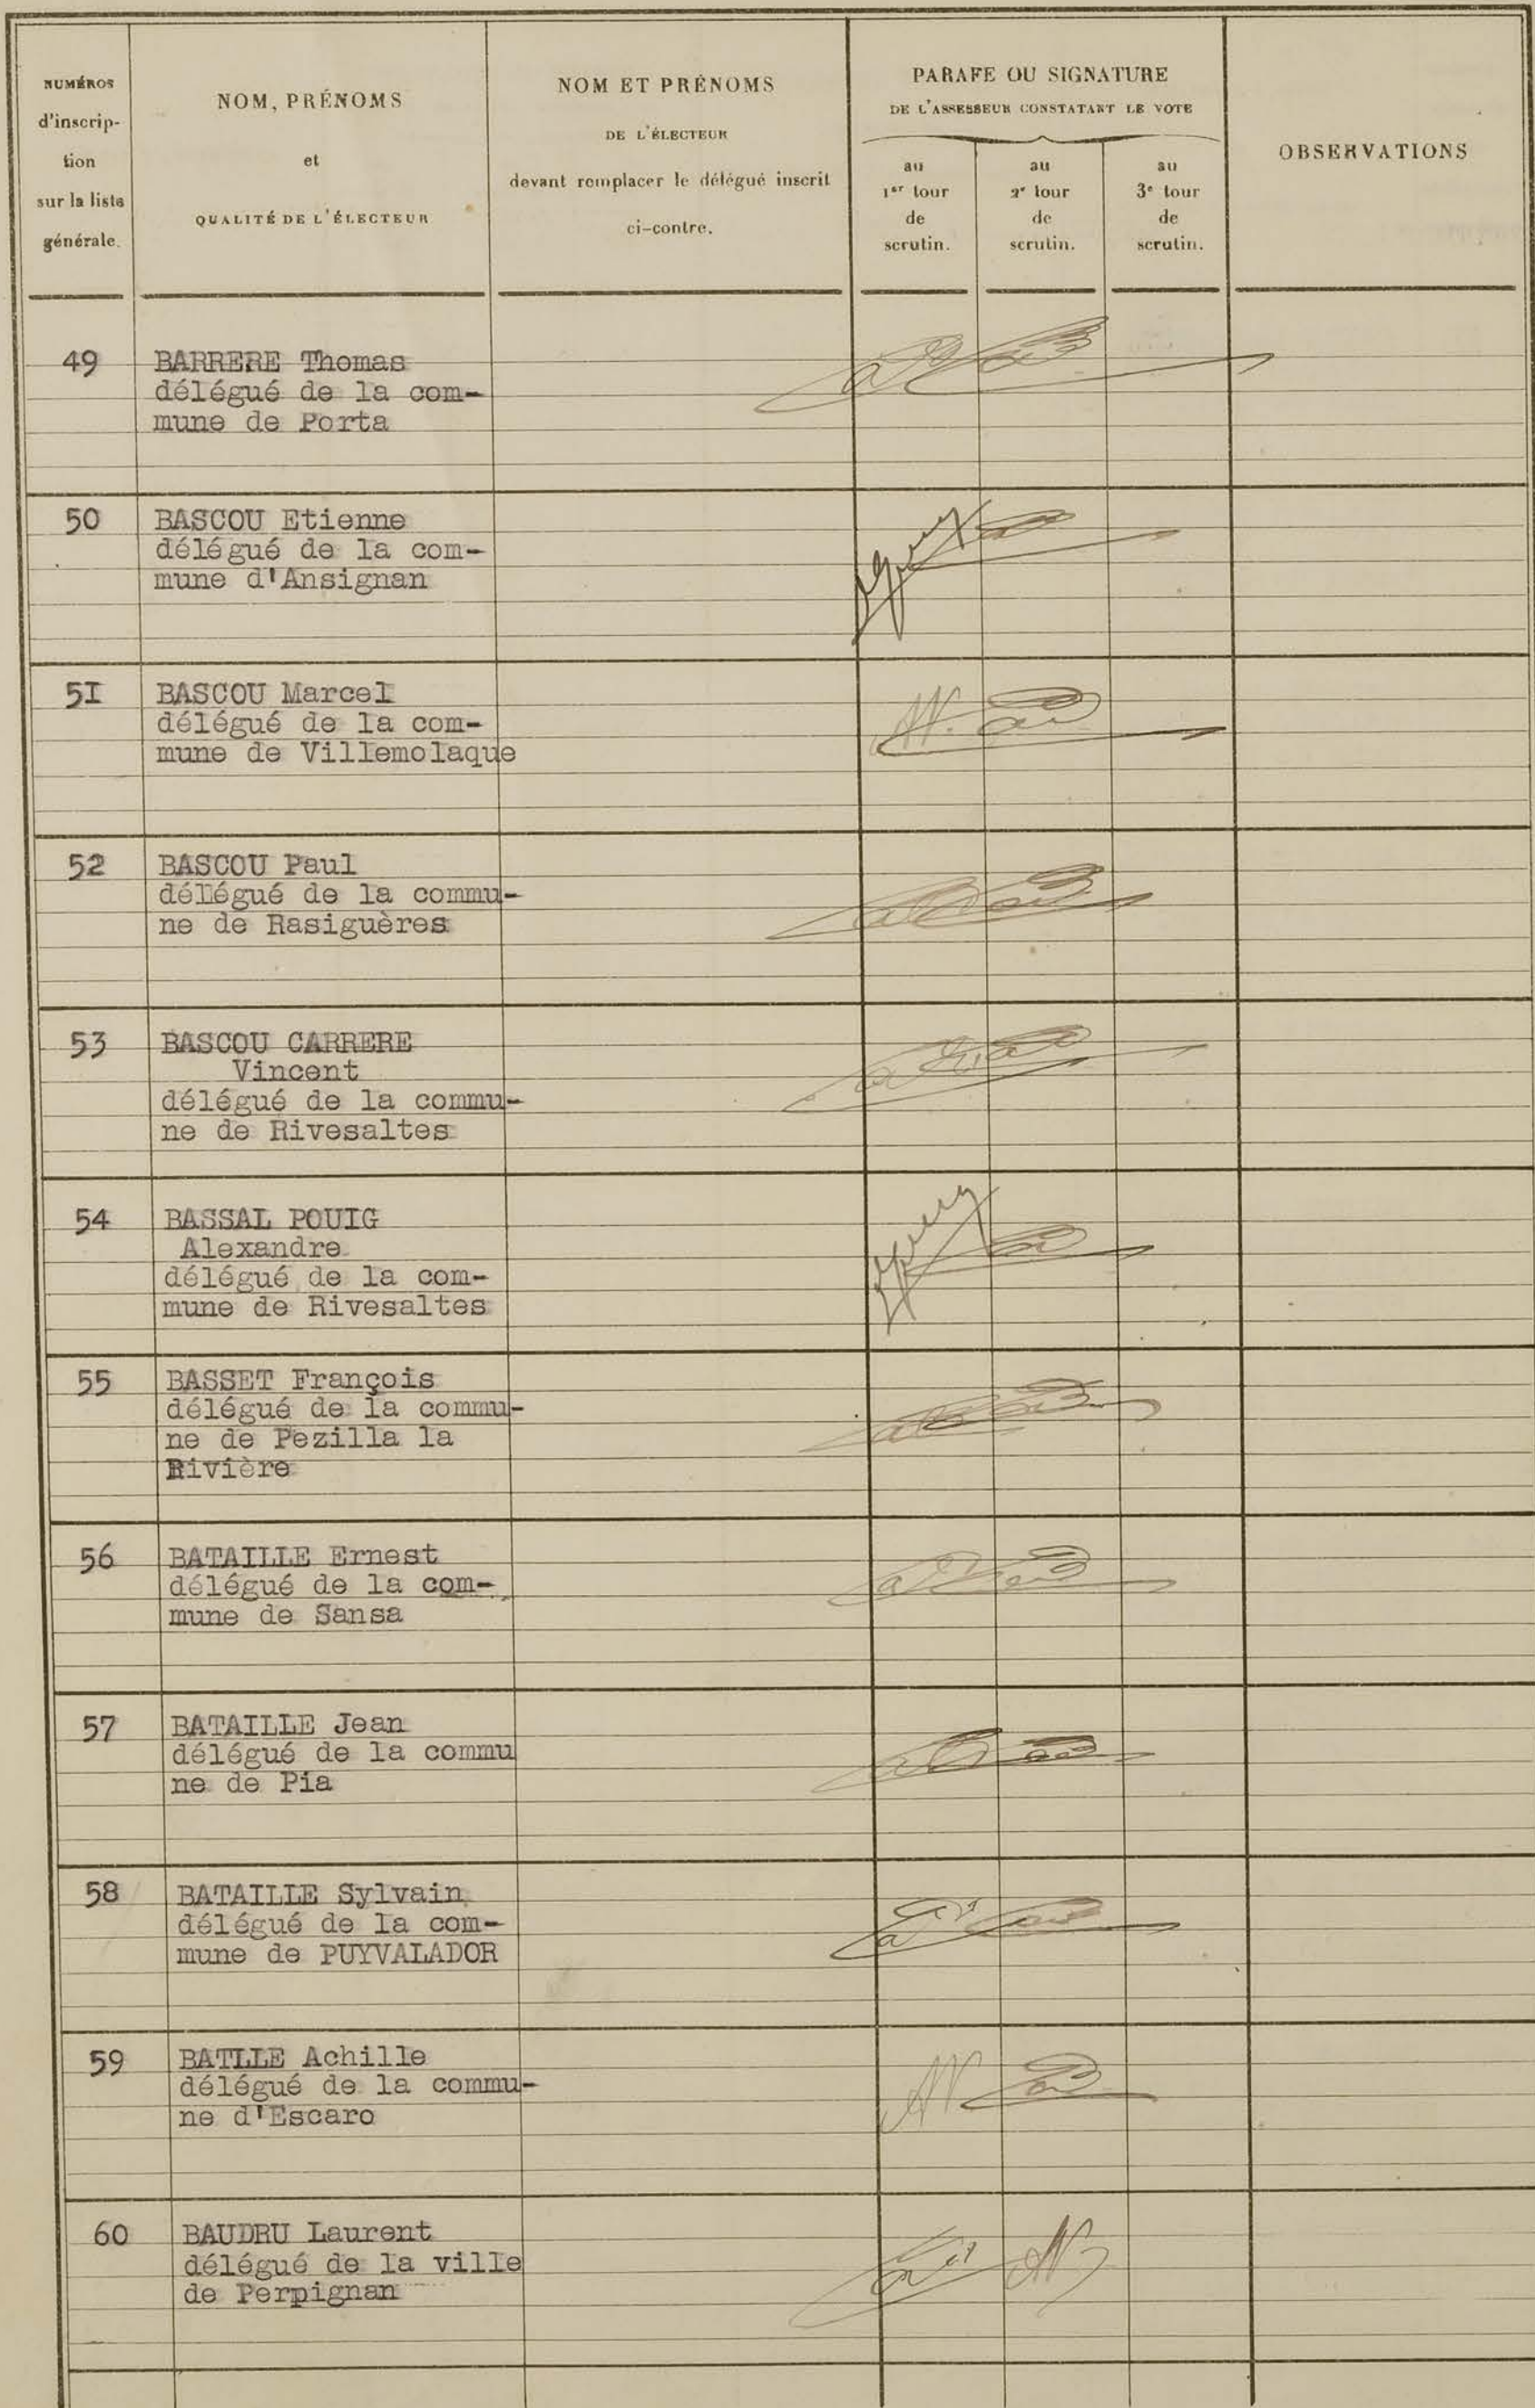 NUMÉROS
d'inscrip-
tion
sur la liste
générale.
NOM, PRÉNOMS
et
QUALITÉ DE L'ÉLECTEUR
NOM ET PRÉNOMS
DE L'ÉLECTEUR
devant remplacer le délégué inscrit
ci-contre.
PARAFE OU SIGNATURE
DE L'ASSESSEUR CONSTATANT LE VOTE
au
1er tour
de
scrutin.
au
2e tour
de
scrutin.
au
3e tour
de
scrutin.
OBSERVATIONS
49 BARRERE Thomas
délégué de la com-
mune de Porta
50 BASCOU Etienne
délégué de la com-
mune d'Ansignan
5I BASCOU Marcel
délégué de la com-
mune de Villemolaque
52 BASCOU Paul
délégué de la commu-
ne de Rasiguères
53 BASCOU CARRERE
Vincent
délégué de la commu-
ne de Rivesaltes
54 BASSAL POUIG
Alexandre
délégué de la com-
mune de Rivesaltes
55 BASSET François
délégué de la commu-
ne de Pezilla la
Rivière
56 BATAILLE Ernest
délégué de la com-
mune de Sansa
57 BATAILLE Jean
délégué de la commu
ne de Pia
58 BATAILLE Sylvain
délégué de la com-
mune de PUYVALADOR
59 BATLLE Achille
délégué de la commu-
ne d'Escaro
60 BAUDRU Laurent
délégué de la ville
de Perpignan